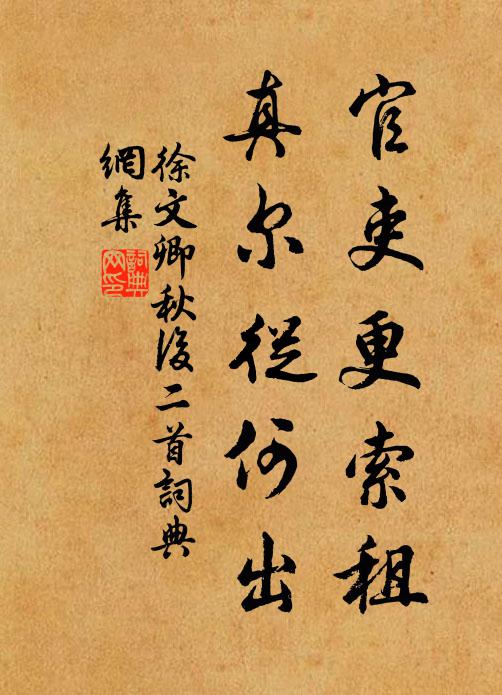 官吏更索租
真尔從何出
徐文卿秋後二首詞典
網集
詞典
网印